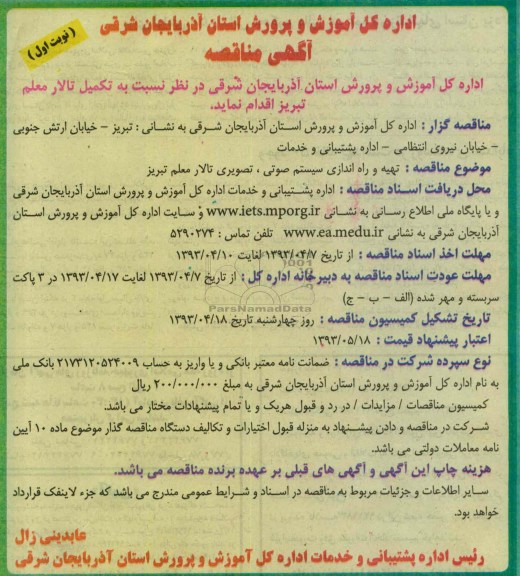 اداره کل آموزش و پرورش استان آذربایجان شرقی
( نوبت اول )
آگهی مناقصه
اداره کل آموزش و پرورش استان آذربایجان شرقی در نظر نسبت به تکمیل تالار معلم
تبریز اقدام نماید.
مناقصه گزار : اداره کل آموزش و پرورش استان آذربایجان شرقی به نشانی : تبریز – خیابان ارتش جنوبی
– خیابان نیروی انتظامی – اداره پشتیبانی و خدمات
موضوع مناقصه : تهیه و راه اندازی سیستم صوتی ، تصویری تالار معلم تبریز
محل دریافت اسناد مناقصه : اداره پشتیبانی و خدمات اداره کل آموزش و پرورش استان آذربایجان شرقی
و یا پایگاه ملی اطلاع رسانی به نشانی www.iets.mporg.ir و سایت اداره کل آموزش و پرورش استان
آذربایجان شرقی به نشانی www.ea.medu.ir تلفن تماس : ۵۲۹۰۲۷۴
مهلت اخذ اسناد مناقصه : از تاریخ ۱۳۹۳/۰۴/۷ لغایت ۱۳۹۳/۰۴/۱۰
مهلت عودت اسناد مناقصه به دبیرخانه اداره کل : از تاریخ ۱۳۹۳/۰۴/۷ لغایت ۱۳۹۳/۰۴/۱۷ در ۳ پاکت
سربسته و مهر شده (الف – ب – ج)
ParsNamadData
تاریخ تشکیل کمیسیون مناقصه : روز چهارشنبه تاریخ ۱۳۹۳/۰۴/۱۸
اعتبار پیشنهاد قیمت : ۱۳۹۳/۰۵/۱۸
نوع سپرده شرکت در مناقصه : ضمانت نامه معتبر بانکی و یا واریز به حساب ۲۱۷۳۱۲۰۵۲۴۰۰۹ بانک ملی
به نام اداره کل آموزش و پرورش استان آذربایجان شرقی به مبلغ ۲۰۰/۰۰۰/۰۰۰ ریال
کمیسیون مناقصات / مزایدات / در رد و قبول هریک و یا تمام پیشنهادات مختار می باشد.
شرکت در مناقصه و دادن پیشنهاد به منزله قبول اختیارات و تکالیف دستگاه مناقصه گذار موضوع ماده ۱۰ آیین
نامه معاملات دولتی می باشد.
هزینه چاپ این آگهی و آگهی های قبلی بر عهده برنده مناقصه می باشد.
سایر اطلاعات و جزئیات مربوط به مناقصه در اسناد و شرایط عمومی مندرج می باشد که جزء لاینفک قرارداد
خواهد بود.
عابدینی زال
رئیس اداره پشتیبانی و خدمات اداره کل آموزش و پرورش استان آذربایجان شرقی